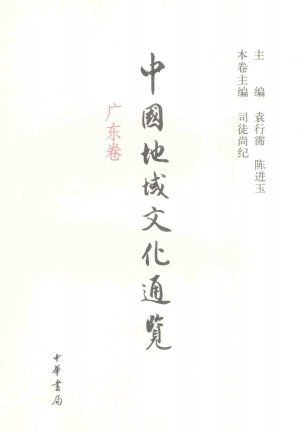 主　编　袁行霈　陈进玉
本卷主编　司徒尚纪
中國地域文化通覽
广东卷
中華書局